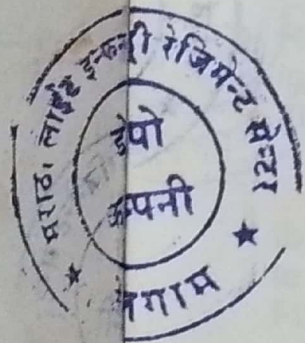 मराठा लाईट इन्फन्ट्री रेजिमेन्ट सेन्टर
डेपो
कम्पनी